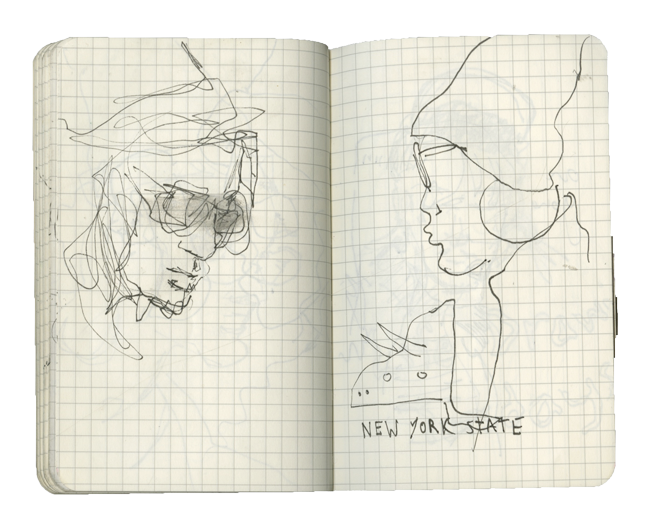 NEW YORK STATE